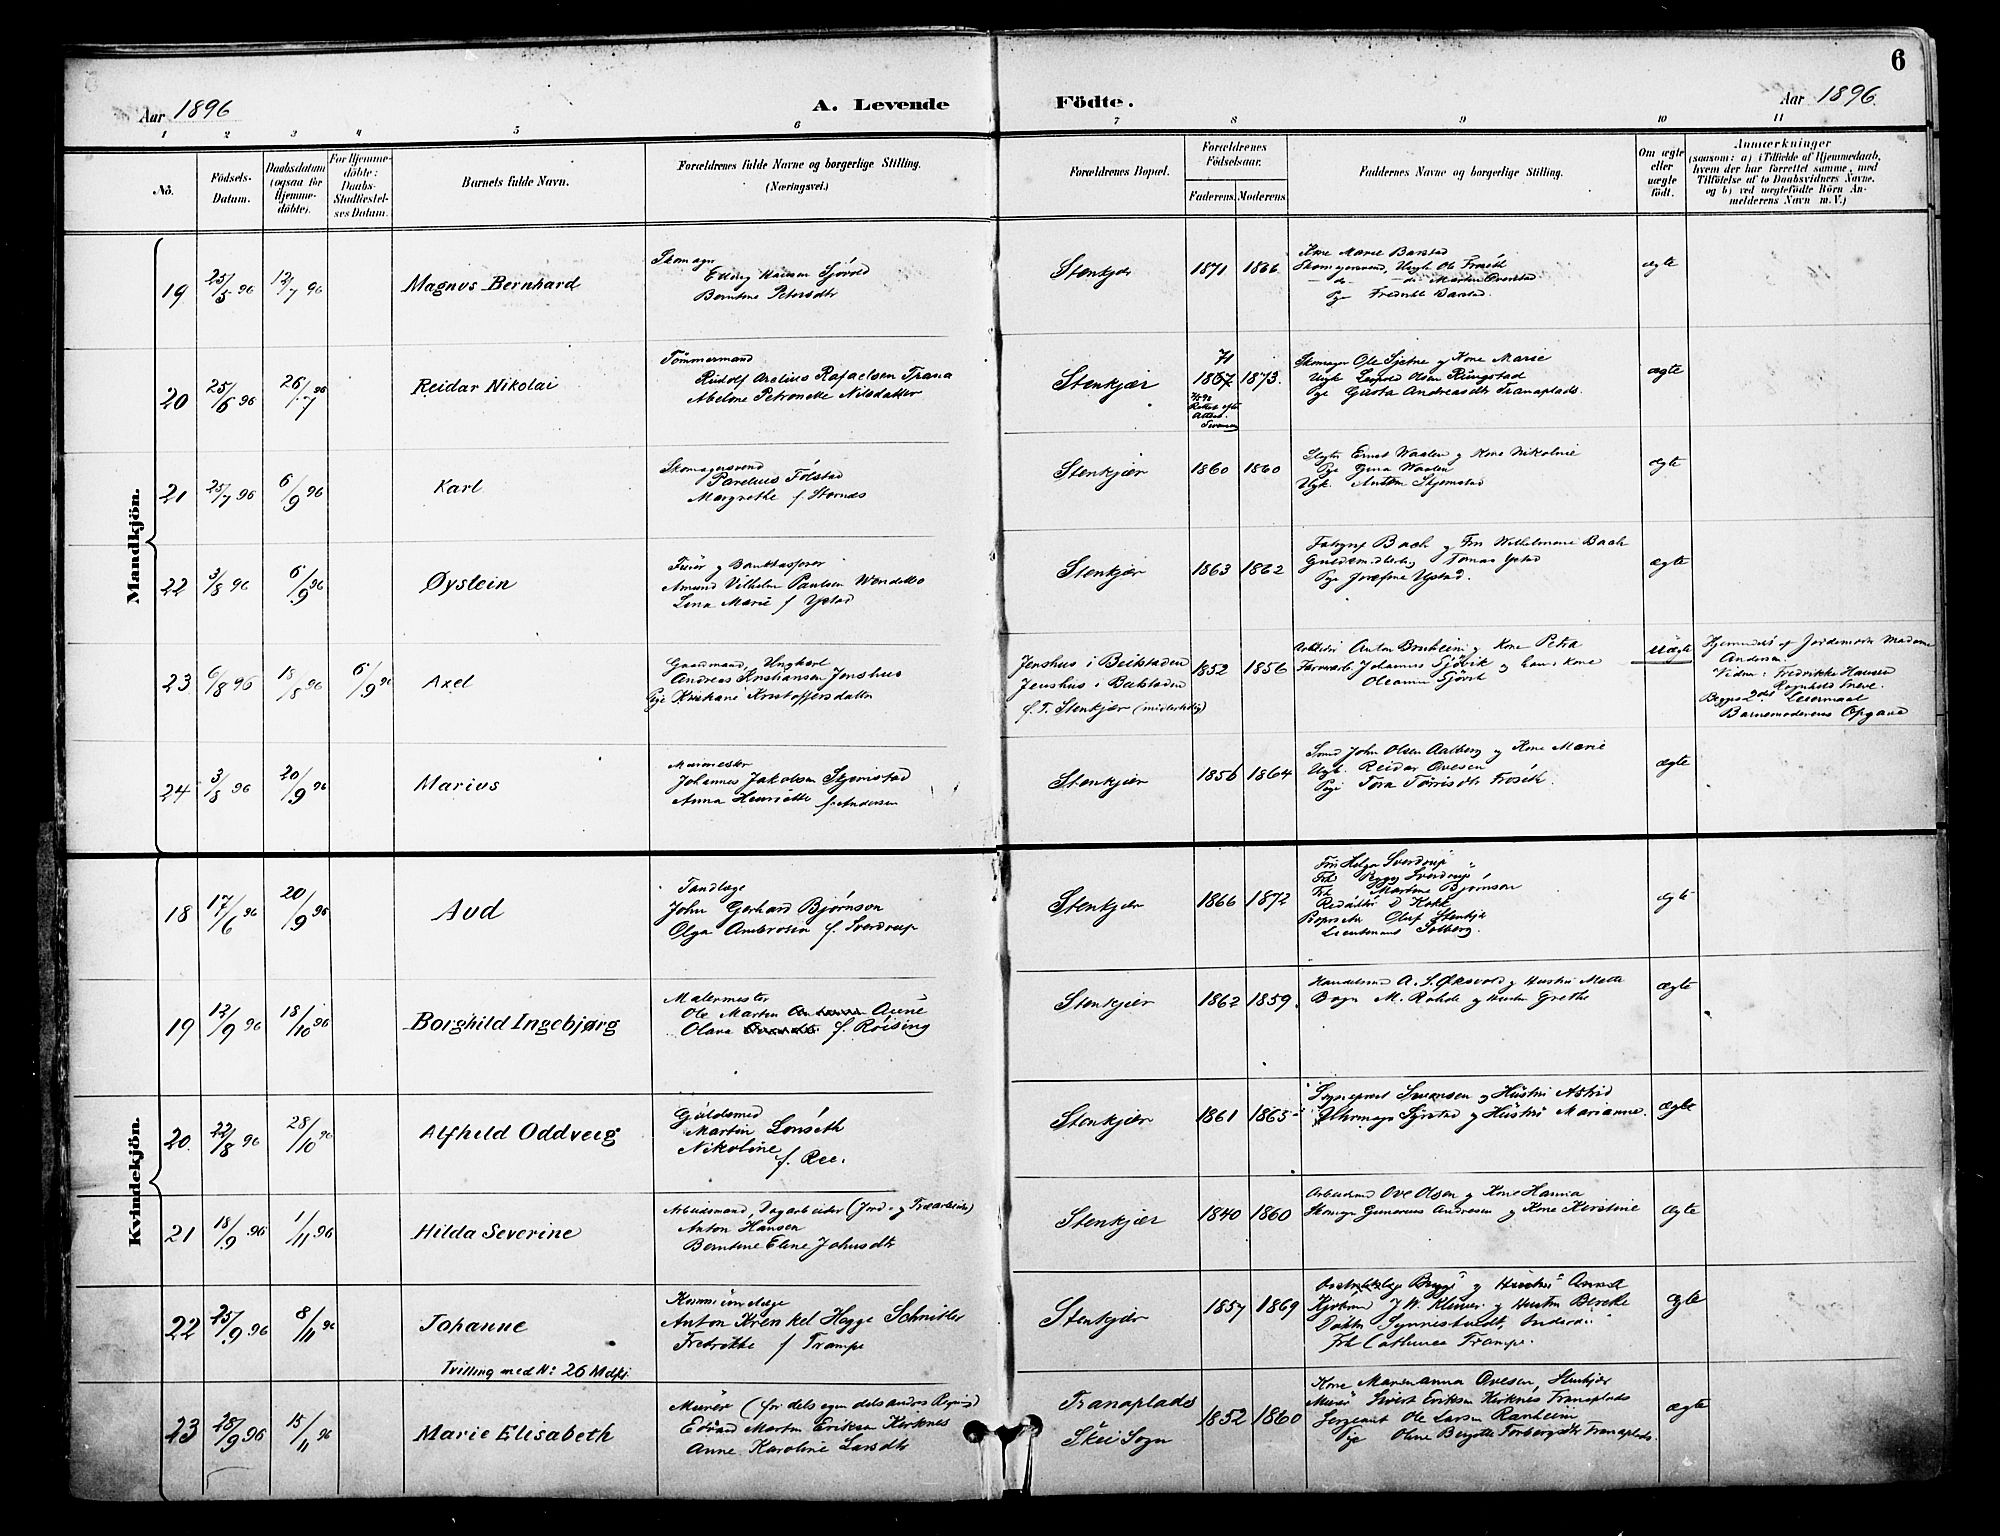 6
Aar 1896
A. Levende
Födte.
Aar 1896.
1 2 3 4 5 6 7 8 9 10 11
Nô.
Födsels-
Datum.
Daabsdatum
(ogsaa för
Hjemme-
döbte).
For Hjemme-
döbte:
Daabs-
Stadfæstel-
ses Datum.
Barnets fulde Navn.
Forældrenes fulde Navne og borgerlige Stilling.
(Næringsvei.)
Forældrenes Bopæl.
Forældrenes
Födselsaar.
Faderens. Moderens.
Faddernes Navne og borgerlige Stilling.
Om ægte
eller
uægte
födt.
Anmærkninger
(saasom: a) i Tilfælde af Hjemmedaab,
hvem der har forrettet samme, med
Tilföielse af to Daabsvidners Navne,
og b) ved uægtefödte Börn An-
melderens Navn m. V.)
Mandkjön.
19 25/5 96 12/7 96 Magnus Bernhard
Skomager
Hansen Sjövold
Berntine Petersdtr
Stenkjær 1871 1866
Kone Marie Barstad
Skomagersvend, Ungk. Ole Froseth
- do - do - Martin
Pige Fredrikke Barstad.
ægte
20 25/6 96 26/7 96 Reidar Nikolai
Tömmermand
Rudolf Arelius Rafaelsen Trana
Abelone Petronelle Nilsdatter
Stenkjær
71
1867 1873.
Rettet efter
Attest.
Skomager Ole Sjetne og Kone Marie
Ungk. Leopold Olsen Rungstad
Pige Gusta Andreasdtr Tranaplads.
ægte
21 25/7 96 6/9 96 Karl
Skomagersvend
Parelius Folstad
Margrethe f. Stornes
Stenkjær 1860 1860
Slagter Ernst Waalen og Kone Nikoline
Pige Gina Waalen
Ungk. Anton Skjemstad
ægte
22 3/8 96 6/9 96 Øystein
og Bankkasserer
Amund Vilhelm Paulsen Wendelbo
Lina Marie f. Ystad
Stenkjær 1863 1862
Fotograf Bach og Fru Wilhelmine Bach
Tomas Ystad
Pige Josefine Ystad.
ægte
23 6/8 96 18/8 96 6/9 96 Axel
Gaardmand, Ungkarl
Andreas Kristiansen Jenshus
Pige Kristiane Kristoffersdatter
Jenshus i Beitstaden
Jenshus i Beitstaden
f. T. Stenkjær (midlertidig)
1852 1856
Anton Bruheim og Kone Petra
Johannes Sjövik og hans Kone
Oleanna
uægte
Hjemmedöbt af Jordemoder Madame
Andersen.
Vidner: Fredrikke Hansen
Ragnhild Sneve.
Begges 2det Leiermaal
Barnemoderens Opgave
24 3/8 96 20/9 96 Marius
Murmester
Johannes Jakobsen Skjemstad
Anna Henriette f. Andersen
Stenkjær 1856 1864
Smed John Olsen Aalberg og Kone Marie
Ungk. Reidar Ovesen
Pige Tora Torrisdtr Froseth.
ægte
Kvindekjön.
18 17/6 96 20/9 96 Aud
Tandlæge
John Gerhard Bjørnson
Olga Ambrosia f. Sverdrup
Stenkjær 1866 1872
Fru Helga Sverdrup
Frk Sverdrup
Frk Martine Bjørnson
Redaktör
Oluf Stenkjær
Lieutenant Solberg.
ægte
19 12/9 96 18/10 96 Borghild Ingebjørg
Malermester
Ole Martin Aune
Olava f. Röising
Stenkjær 1862 1859.
Handelsmd A. S. Øksvold og Hustru Mette
M. Rohde og Hustru Grethe
ægte
20. 22/8 96 28/10 96 Alfhild Oddveig
Guldsmed
Martin Lonseth
Nikoline
f. Ree.
Stenkjær 1861 1865
Sogneprest Svensen og Hustru Astrid
og Hustru Marianne.
ægte
21 18/9 96 1/11 96 Hilda Severine
Arbeidsmand, Dagarbeider (Jord- og Træarbeide)
Anton Hansen
Berntine Eline Johnsdtr
Stenkjær 1840 1860
Arbeidsmd Ove Olsen og Kone Hanna
Skomager Gunerius Andresen og Kone Kirstine
ægte
22 25/9 96 8/11 96 Johanne
Anton Krenkel Hegge Schnitler
Fredrikke f. Trampe
Stenkjær 1857 1869
Brygge og Hustru Anna
J W Klüwer og Hustru Bereke
Doktor Synnestvedt, Inderöen
Frk Cathinca Trampe.
ægte
Tvilling med N: 26 Mdkj.
23 28/9 96 15/11 96 Marie Elisabeth
Murer (for dels egen dels andres Regning)
Edvard Martin Eriksen Kirknes
Anne Karoline Larsdtr
Tranaplads
Skei Sogn
1852 1860
Kone Marenanna Ovesen, Stenkjær
Murer Sivert Eriksen Kirknes Tranaplads
Sergeant Ole Larsen Ranheim
Pige Oline Bergitte Forbergsdtr Tranaplads.
ægte